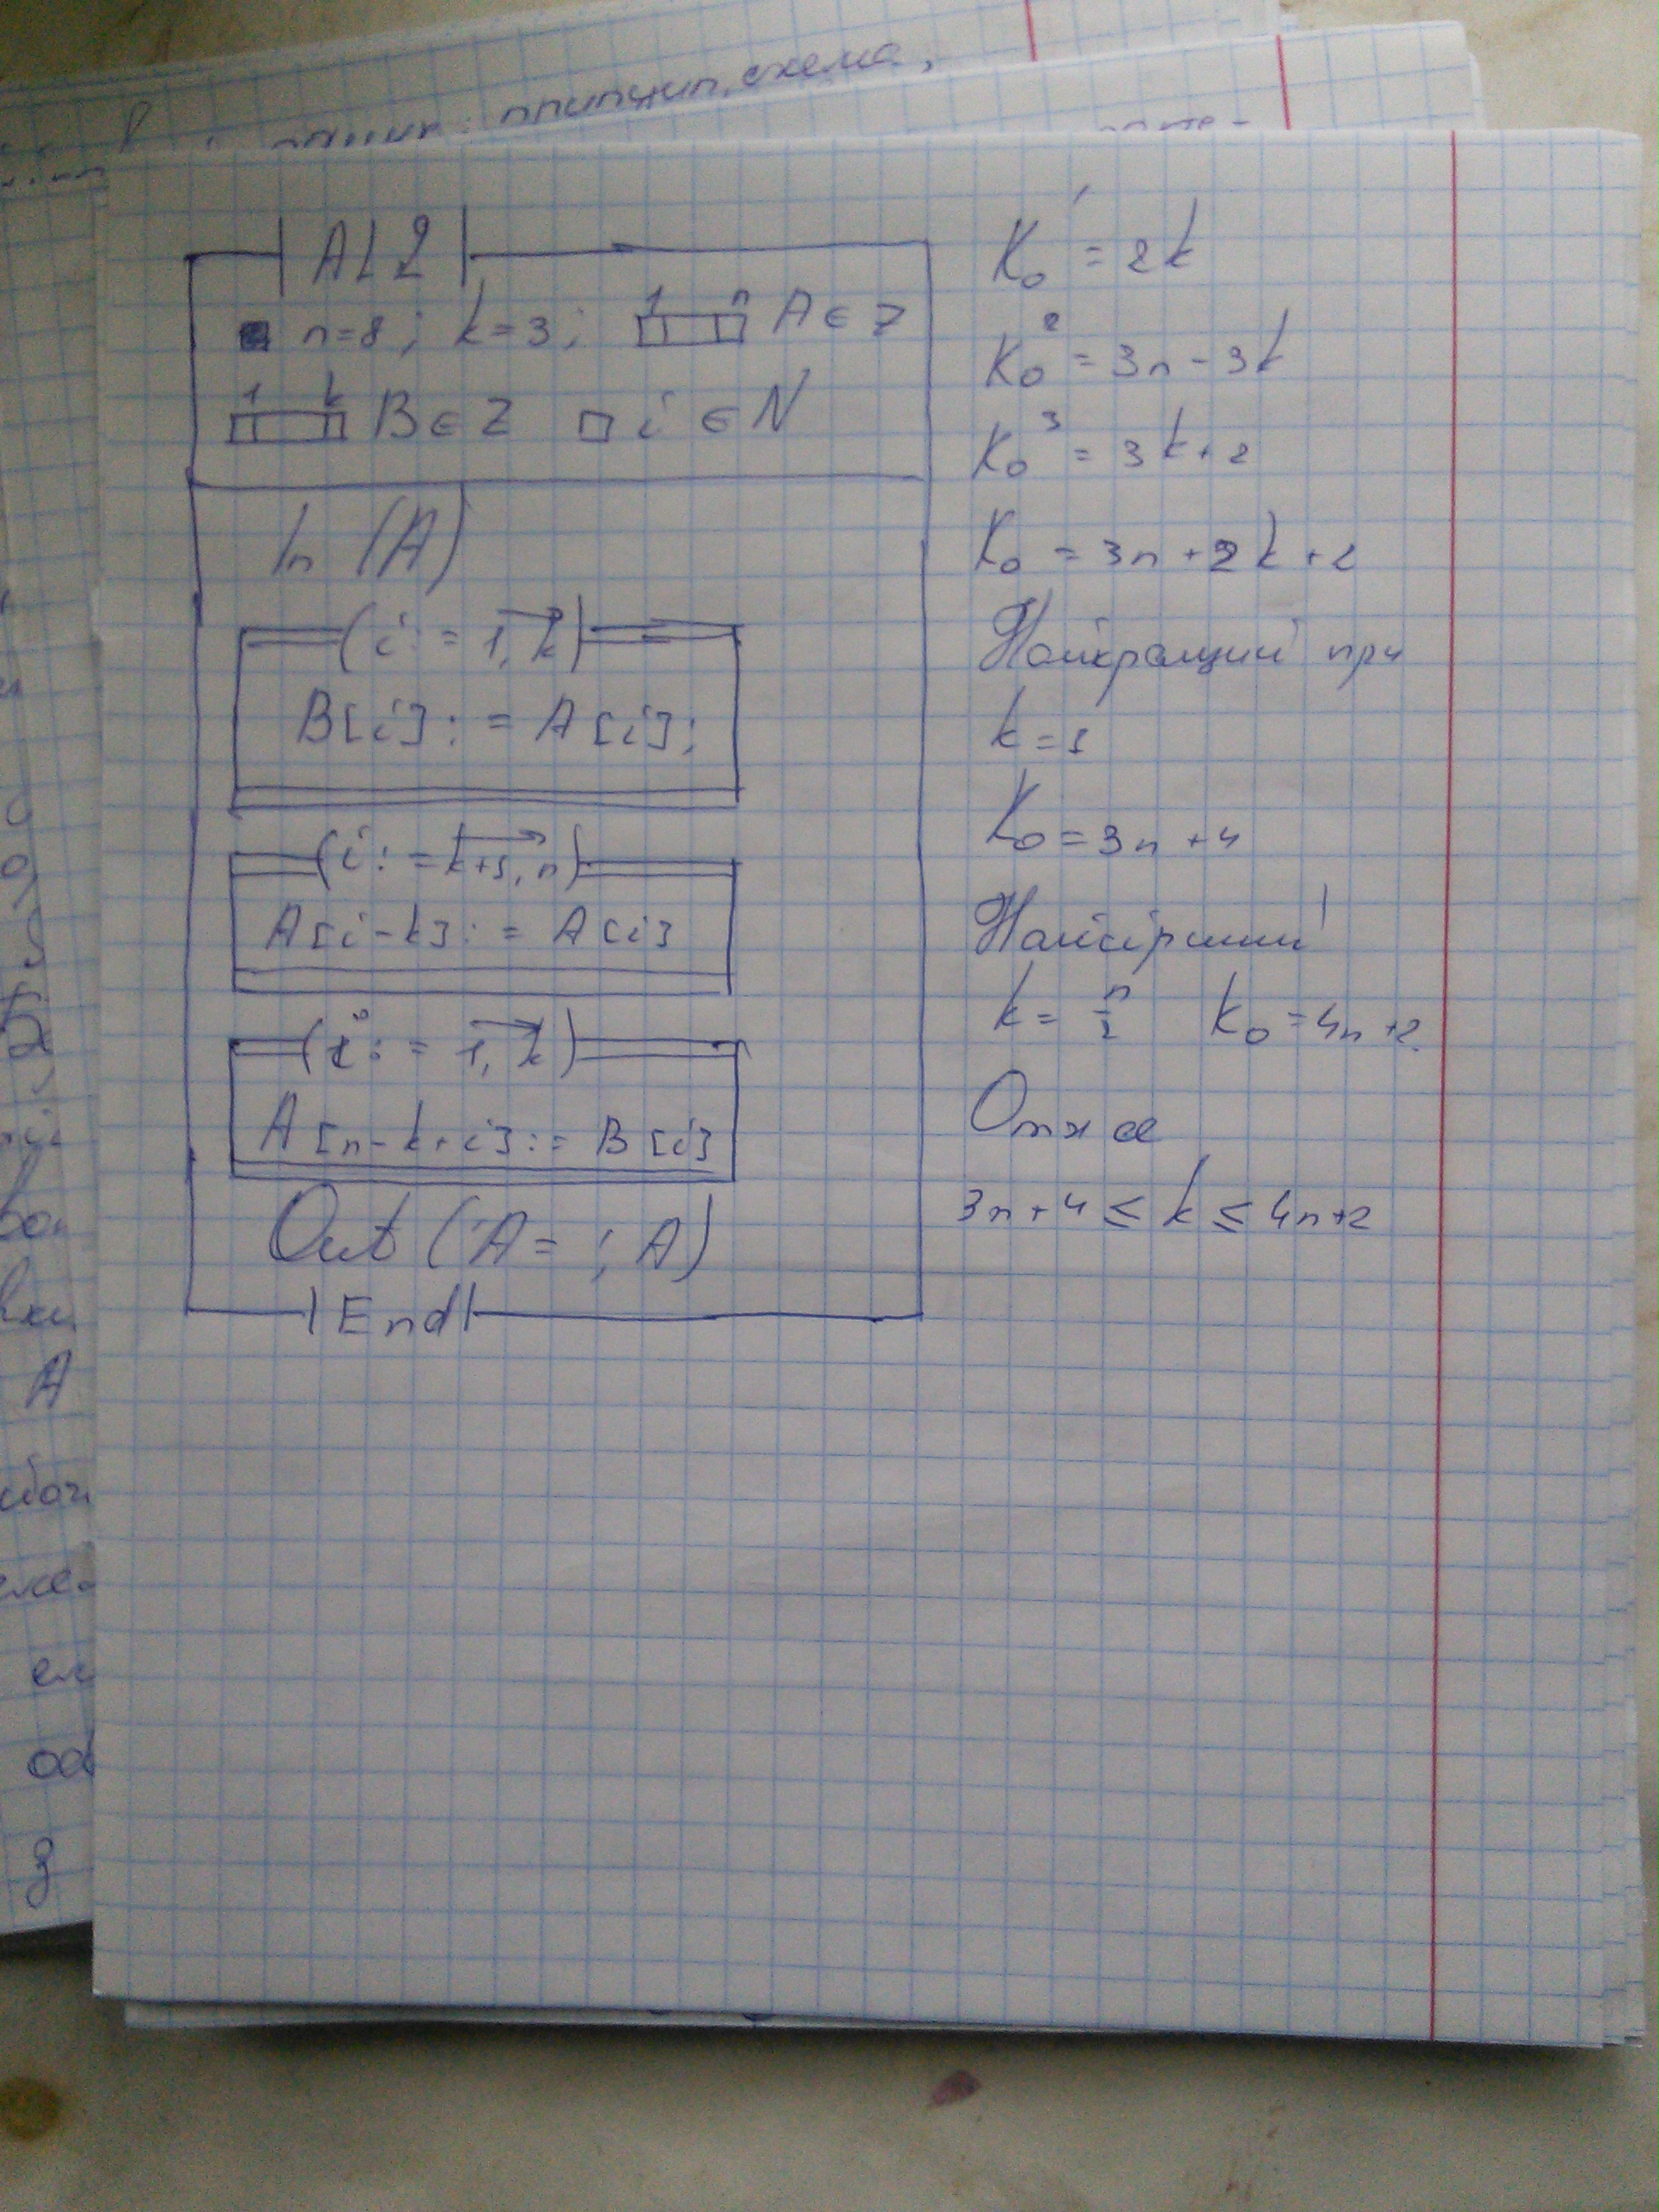 принцип, схема,
AL2
n=8; k=3; 1 n A ∈ Z
1 k B ∈ Z i ∈ N
In (A)
(i := 1, k)
B[i] := A[i];
(i := k+1, n)
A[i-k] := A[i]
(i := 1, k)
A[n-k+i] := B[i]
Out ('A= ', A)
End
K₀¹ = 2k
K₀² = 3n - 3k
K₀³ = 3k + 2
K₀ = 3n + 2k + 2
Найкращий при
k = 1
K₀ = 3n + 4
Найгірший
k = n/2 K₀ = 4n + 2
Отже
3n + 4 ≤ k ≤ 4n + 2